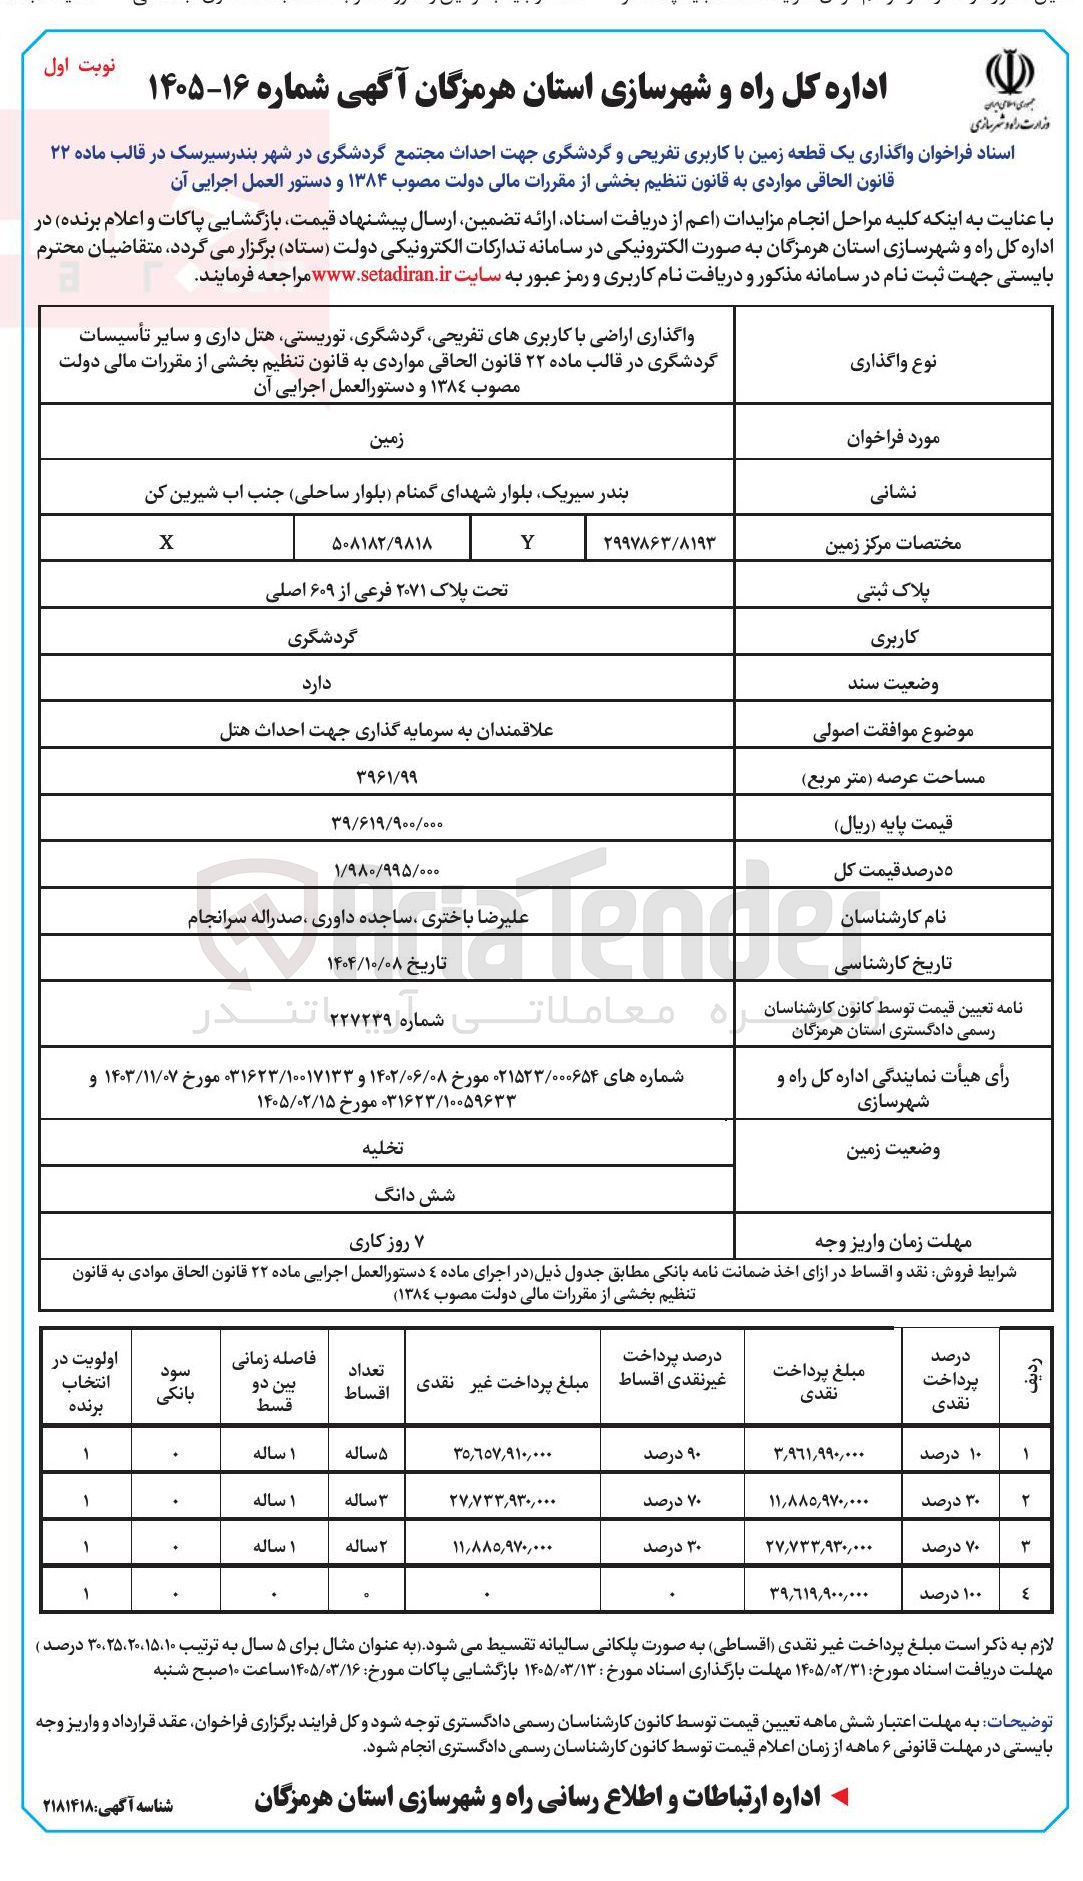 نوبت اول
جمهوری اسلامی ایران
وزارت راه و شهرسازی
اداره کل راه و شهرسازی استان هرمزگان آگهی شماره ۱۶-۱۴۰۵
اسناد فراخوان واگذاری یک قطعه زمین با کاربری تفریحی و گردشگری جهت احداث مجتمع گردشگری در شهر بندرسیرسک در قالب ماده ۲۲
قانون الحاقی مواردی به قانون تنظیم بخشی از مقررات مالی دولت مصوب ۱۳۸۴ و دستور العمل اجرایی آن
با عنایت به اینکه کلیه مراحل انجام مزایدات (اعم از دریافت اسناد، ارائه تضمین، ارسال پیشنهاد قیمت، بازگشایی پاکات و اعلام برنده) در
اداره کل راه و شهرسازی استان هرمزگان به صورت الکترونیکی در سامانه تدارکات الکترونیکی دولت (ستاد) برگزار می گردد، متقاضیان محترم
بایستی جهت ثبت نام در سامانه مذکور و دریافت نام کاربری و رمز عبور به سایت www.setadiran.ir مراجعه فرمایند.
نوع واگذاری
واگذاری اراضی با کاربری های تفریحی، گردشگری، توریستی، هتل داری و سایر تأسیسات
گردشگری در قالب ماده ۲۲ قانون الحاقی مواردی به قانون تنظیم بخشی از مقررات مالی دولت
مصوب ۱۳۸٤ و دستورالعمل اجرایی آن
مورد فراخوان زمین
نشانی بندر سیریک، بلوار شهدای گمنام (بلوار ساحلی) جنب اب شیرین کن
مختصات مرکز زمین ۲۹۹۷۸۶۳/۸۱۹۳ Y ۵۰۸۱۸۲/۹۸۱۸ X
پلاک ثبتی تحت پلاک ۲۰۷۱ فرعی از ۶۰۹ اصلی
کاربری گردشگری
وضعیت سند دارد
موضوع موافقت اصولی علاقمندان به سرمایه گذاری جهت احداث هتل
مساحت عرصه (متر مربع) ۳۹۶۱/۹۹
قیمت پایه (ریال) ۳۹/۶۱۹/۹۰۰/۰۰۰
۵درصدقیمت کل ۱/۹۸۰/۹۹۵/۰۰۰
نام کارشناسان علیرضا باختری ،ساجده داوری ،صدراله سرانجام
تاریخ کارشناسی تاریخ ۱۴۰۴/۱۰/۰۸
نامه تعیین قیمت توسط کانون کارشناسان
رسمی دادگستری استان هرمزگان
شماره ۲۲۷۲۳۹
رأی هیأت نمایندگی اداره کل راه و
شهرسازی
شماره های ۰۲۱۵۲۳/۰۰۰۶۵۴ مورخ ۱۴۰۲/۰۶/۰۸ و ۰۳۱۶۲۳/۱۰۰۱۷۱۳۳ مورخ ۱۴۰۳/۱۱/۰۷ و
۰۳۱۶۲۳/۱۰۰۵۹۶۳۳ مورخ ۱۴۰۵/۰۲/۱۵
وضعیت زمین تخلیه
شش دانگ
مهلت زمان واریز وجه ۷ روز کاری
شرایط فروش: نقد و اقساط در ازای اخذ ضمانت نامه بانکی مطابق جدول ذیل(در اجرای ماده ٤ دستورالعمل اجرایی ماده ۲۲ قانون الحاق موادی به قانون
تنظیم بخشی از مقررات مالی دولت مصوب ۱۳۸٤)
ردیف درصد پرداخت نقدی مبلغ پرداخت نقدی درصد پرداخت غیرنقدی اقساط مبلغ پرداخت غیر نقدی تعداد اقساط فاصله زمانی بین دو قسط سود بانکی اولویت در انتخاب برنده
۱ ۱۰ درصد ۳,۹۶۱,۹۹۰,۰۰۰ ۹۰ درصد ۳۵,۶۵۷,۹۱۰,۰۰۰ ۵ساله ۱ ساله ۰ ۱
۲ ۳۰ درصد ۱۱,۸۸۵,۹۷۰,۰۰۰ ۷۰ درصد ۲۷,۷۳۳,۹۳۰,۰۰۰ ۳ساله ۱ ساله ۰ ۱
۳ ۷۰ درصد ۲۷,۷۳۳,۹۳۰,۰۰۰ ۳۰ درصد ۱۱,۸۸۵,۹۷۰,۰۰۰ ۲ساله ۱ ساله ۰ ۱
٤ ۱۰۰ درصد ۳۹,۶۱۹,۹۰۰,۰۰۰ ۰ ۰ ۰ ۰ ۰ ۱
لازم به ذکر است مبلغ پرداخت غیر نقدی (اقساطی) به صورت پلکانی سالیانه تقسیط می شود.(به عنوان مثال برای ۵ سال به ترتیب ۳۰،۲۵،۲۰،۱۵،۱۰ درصد )
مهلت دریافت اسناد مورخ: ۱۴۰۵/۰۲/۳۱ مهلت بارگذاری اسناد مورخ : ۱۴۰۵/۰۳/۱۳ بازگشایی پاکات مورخ: ۱۴۰۵/۰۳/۱۶ساعت ۱۰صبح شنبه
توضیحات: به مهلت اعتبار شش ماهه تعیین قیمت توسط کانون کارشناسان رسمی دادگستری توجه شود و کل فرایند برگزاری فراخوان، عقد قرارداد و واریز وجه
بایستی در مهلت قانونی ۶ ماهه از زمان اعلام قیمت توسط کانون کارشناسان رسمی دادگستری انجام شود.
اداره ارتباطات و اطلاع رسانی راه و شهرسازی استان هرمزگان
شناسه آگهی:۲۱۸۱۴۱۸
AriaTender